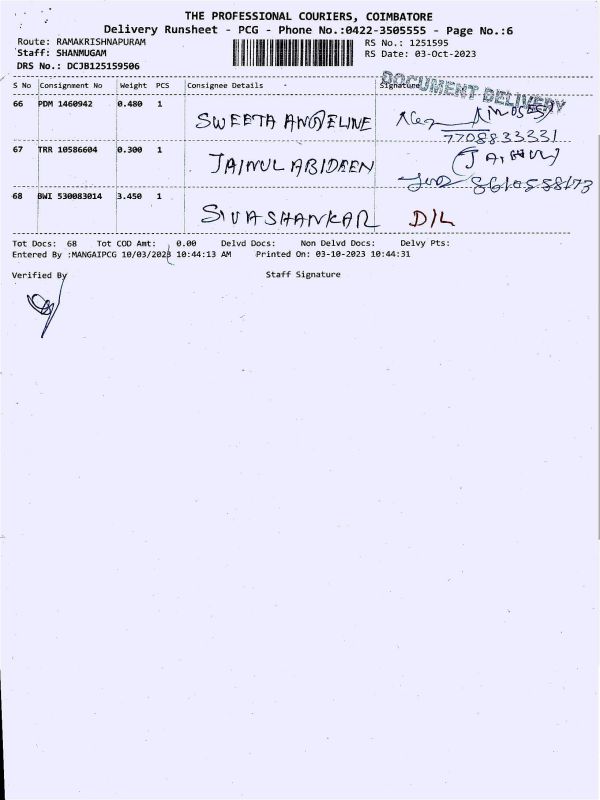 THE PROFESSIONAL COURIERS, COIMBATORE
Delivery Runsheet - PCG - Phone No.:0422-3505555 - Page No.:6
Route: RAMAKRISHNAPURAM
RS No.: 1251595
Staff: SHANMUGAM
RS Date: 03-Oct-2023
DRS No.: DCJB125159506
S No Consignment No Weight PCS Consignee Details Signature
DOCUMENT DELIVERY
66 PDM 1460942 0.480 1 SWEETA ANGELINE (MOSES)
7708833331
67 TRR 10586604 0.300 1 JAINUL ABIDEEN
68 BWI 530083014 3.450 1 SIVASHANKAR D/L
Tot Docs: 68 Tot COD Amt: 0.00 Delvd Docs: Non Delvd Docs: Delvy Pts:
Entered By :MANGAIPCG 10/03/2023 10:44:13 AM Printed On: 03-10-2023 10:44:31
Verified By Staff Signature